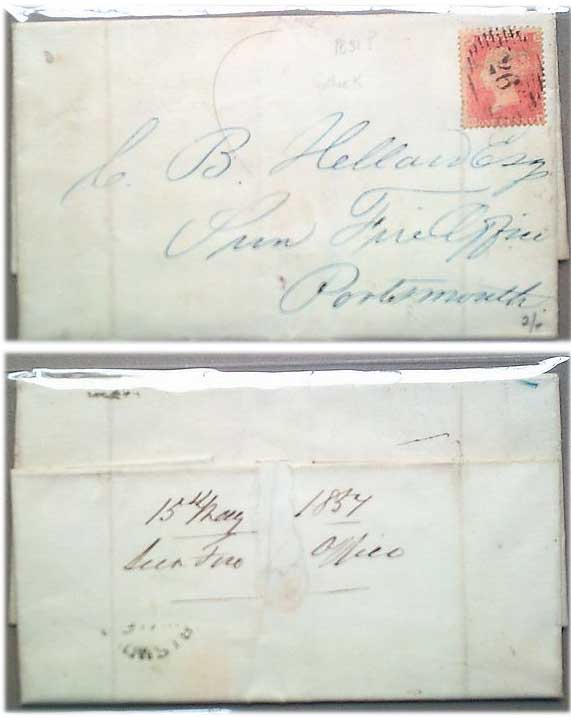 1851?
26
C. B. Hellard Esq
Sun Fire Office
Portsmouth
2/-
15th May 1857
Sun Fire Office